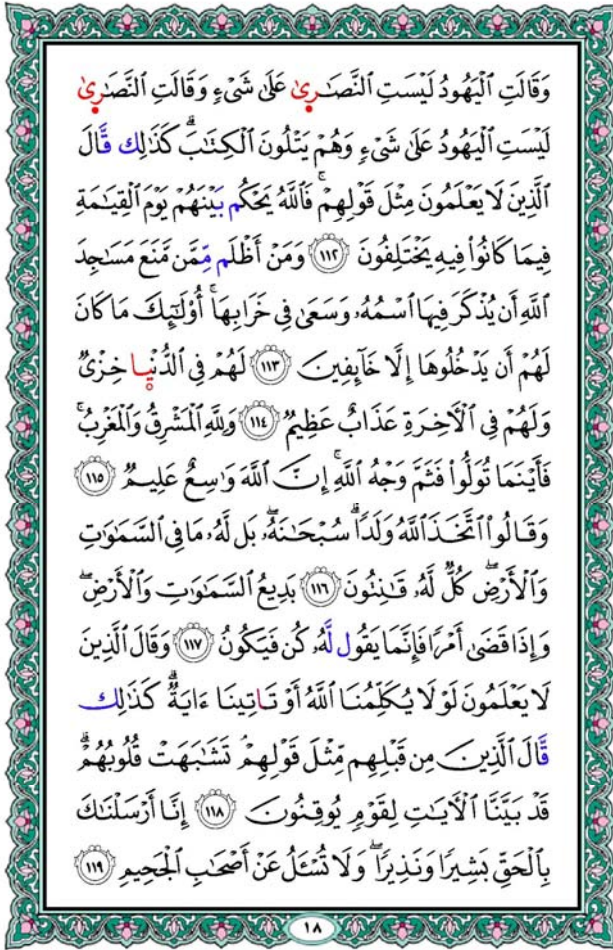 وَقَالَتِ ٱلْيَهُودُ لَيْسَتِ ٱلنَّصَٰرِىٰ عَلَىٰ شَىْءٍ وَقَالَتِ ٱلنَّصَٰرِىٰ
لَيْسَتِ ٱلْيَهُودُ عَلَىٰ شَىْءٍ وَهُمْ يَتْلُونَ ٱلْكِتَٰبَۗ كَذَٰلِك قَّالَ
ٱلَّذِينَ لَا يَعْلَمُونَ مِثْلَ قَوْلِهِمْۚ فَٱللَّهُ يَحْكُم بَيْنَهُمْ يَوْمَ ٱلْقِيَٰمَةِ
فِيمَا كَانُواْ فِيهِ يَخْتَلِفُونَ ١١٢ وَمَنْ أَظْلَم مِّمَّن مَّنَعَ مَسَٰجِدَ
ٱللَّهِ أَن يُذْكَرَ فِيهَا ٱسْمُهُۥ وَسَعَىٰ فِى خَرَابِهَاۚ أُوْلَٰٓئِكَ مَا كَانَ
لَهُمْ أَن يَدْخُلُوهَا إِلَّا خَآئِفِينَ ١١٣ لَهُمْ فِى ٱلدُّنْيِا خِزْىٌ
وَلَهُمْ فِى ٱلْأَخِرَةِ عَذَابٌ عَظِيمٌ ١١٤ وَلِلَّهِ ٱلْمَشْرِقُ وَٱلْمَغْرِبُۚ
فَأَيْنَمَا تُوَلُّواْ فَثَمَّ وَجْهُ ٱللَّهِۚ إِنَّ ٱللَّهَ وَٰسِعٌ عَلِيمٌ ١١٥
وَقَالُواْ ٱتَّخَذَ ٱللَّهُ وَلَدًاۗ سُبْحَٰنَهُۥۖ بَل لَّهُۥ مَا فِى ٱلسَّمَٰوَٰتِ
وَٱلْأَرْضِۖ كُلٌّ لَّهُۥ قَٰنِتُونَ ١١٦ بَدِيعُ ٱلسَّمَٰوَٰتِ وَٱلْأَرْضِۖ
وَإِذَا قَضَىٰ أَمْرًا فَإِنَّمَا يَقُول لَّهُۥ كُن فَيَكُونُ ١١٧ وَقَالَ ٱلَّذِينَ
لَا يَعْلَمُونَ لَوْلَا يُكَلِّمُنَا ٱللَّهُ أَوْ تَاتِينَا ءَايَةٌۗ كَذَٰلِك
قَّالَ ٱلَّذِينَ مِن قَبْلِهِم مِّثْلَ قَوْلِهِمْۘ تَشَٰبَهَتْ قُلُوبُهُمْۗ
قَدْ بَيَّنَّا ٱلْأَيَٰتِ لِقَوْمٍ يُوقِنُونَ ١١٨ إِنَّا أَرْسَلْنَٰكَ
بِٱلْحَقِّ بَشِيرًا وَنَذِيرًاۖ وَلَا تُسْـَٔلُ عَنْ أَصْحَٰبِ ٱلْجَحِيمِ ١١٩
١٨